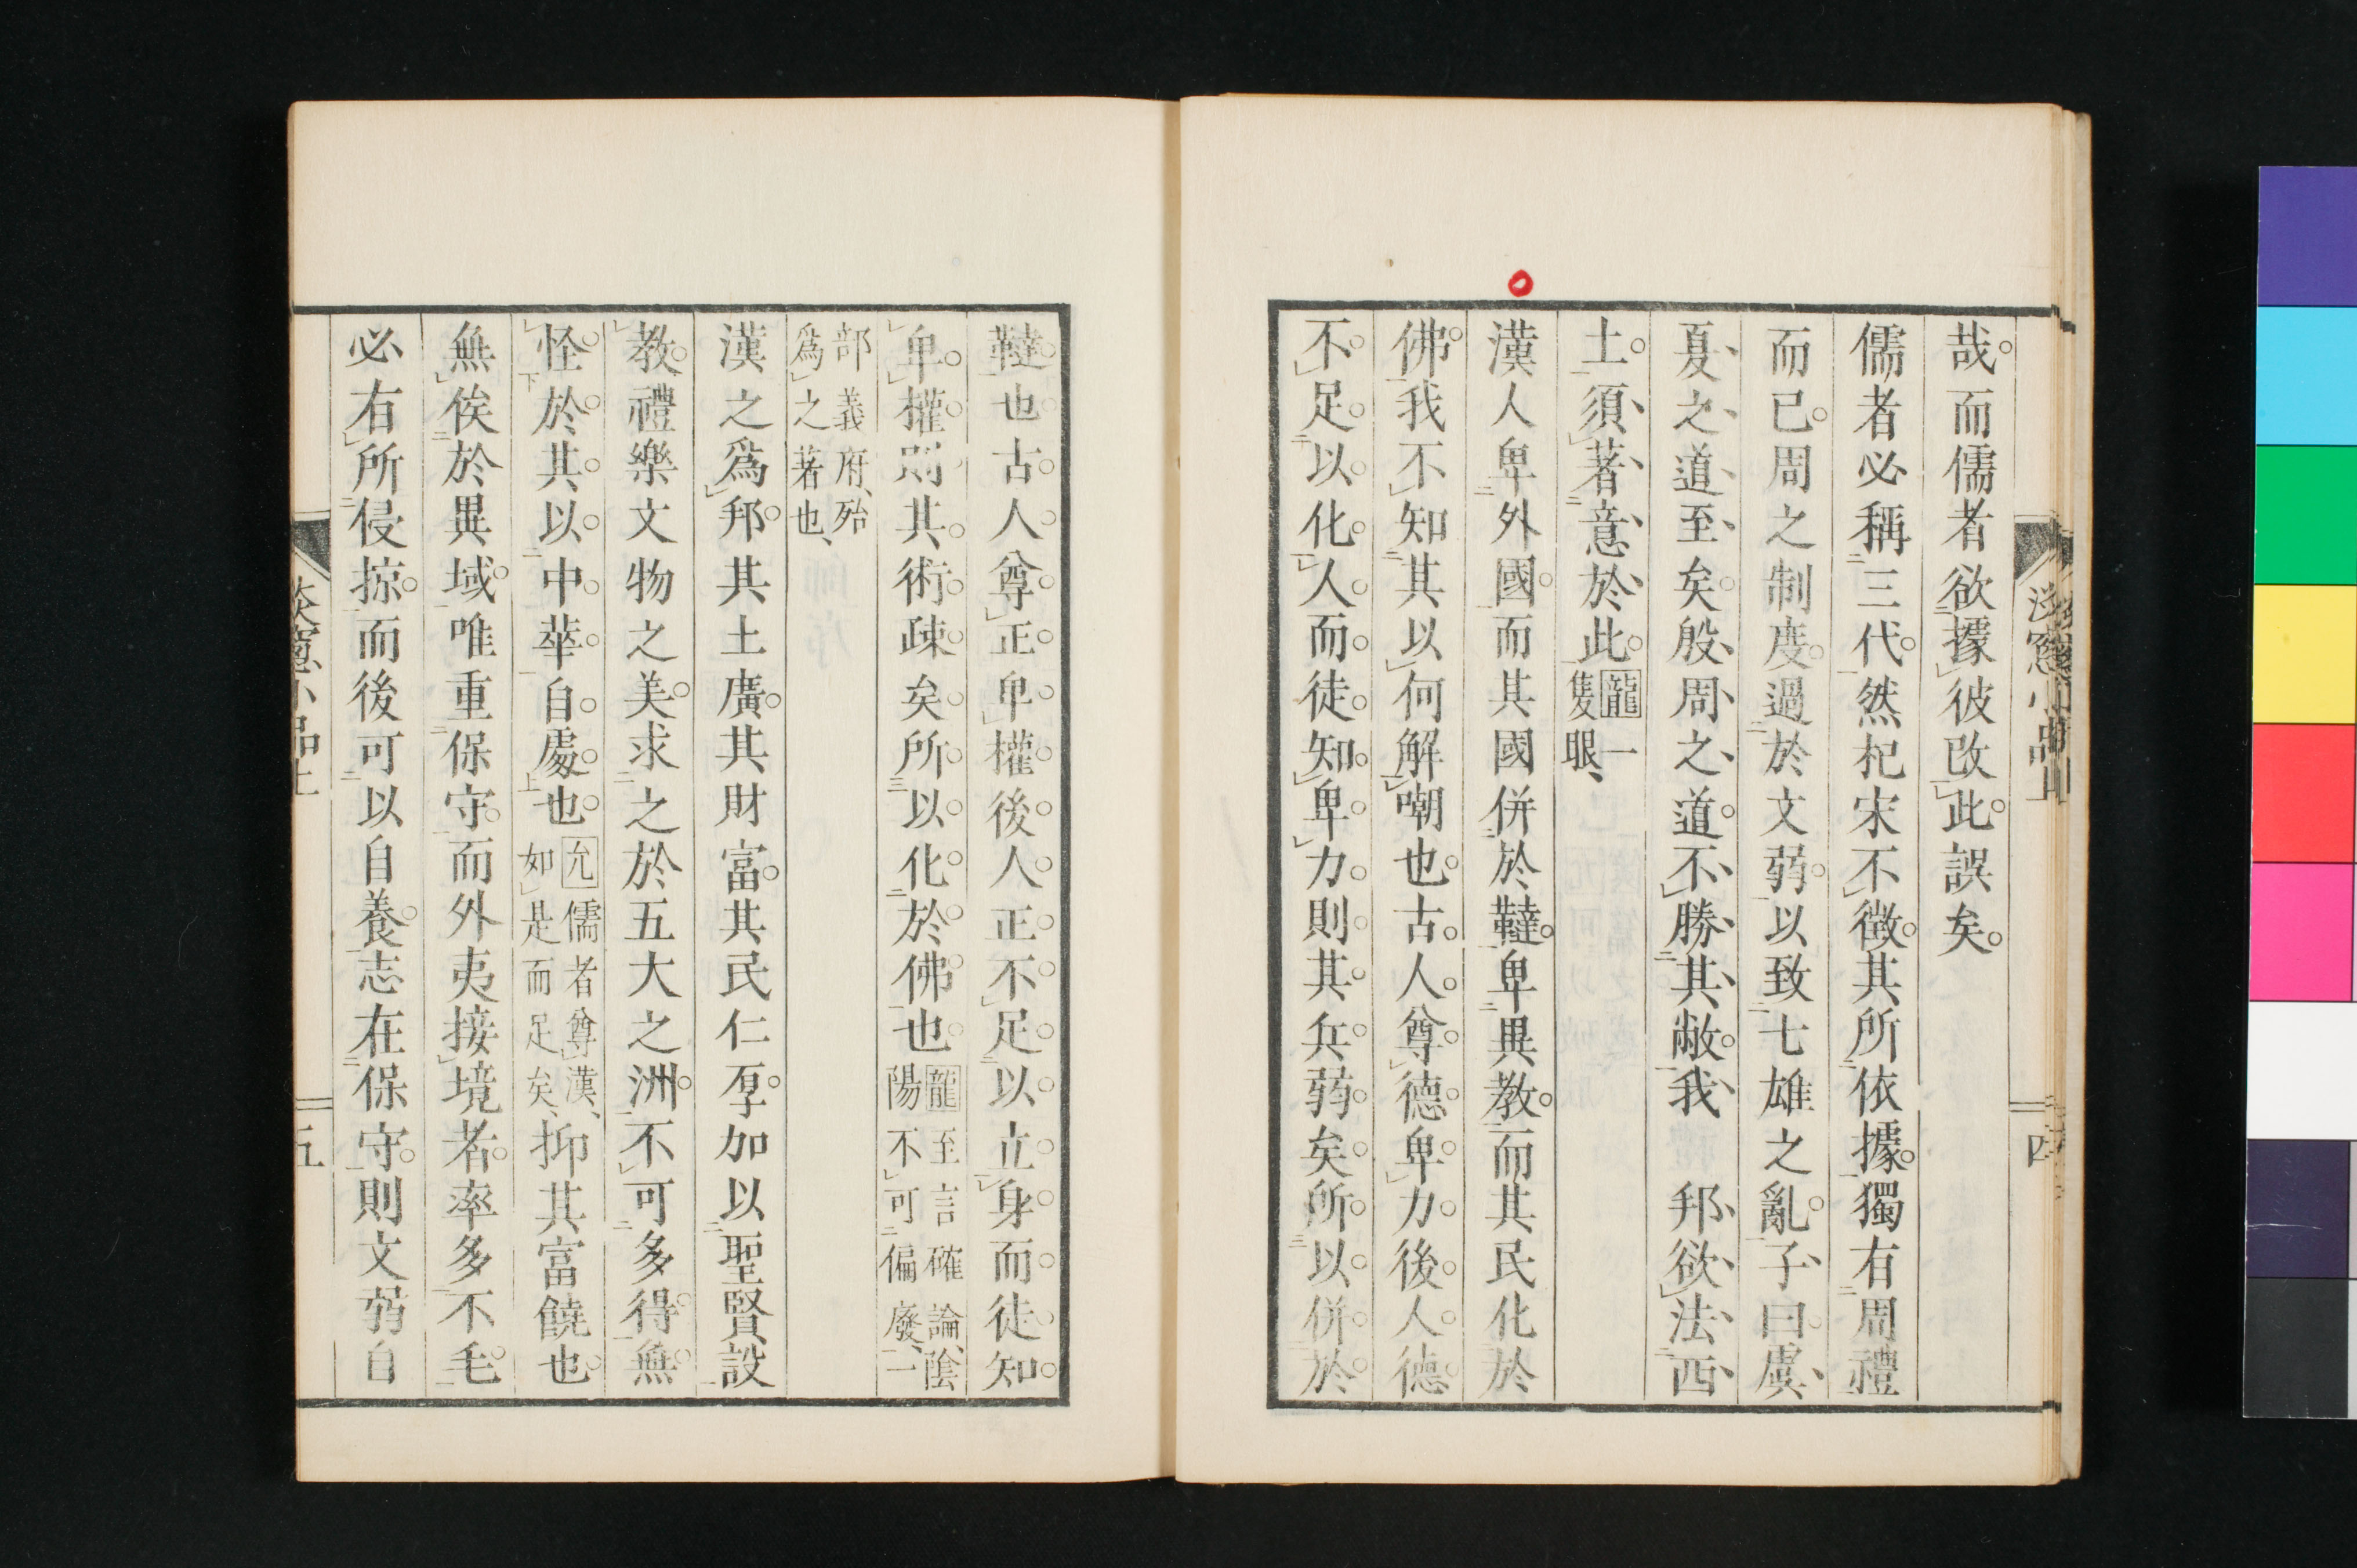 哉而儒者欲據彼改此誤矣
儒者必稱三代然杞宋不徵其所依據獨有周禮
而已周之制度過於文弱以致七雄之亂子曰虞
夏之道至矣殷周之道不勝其敝我 邦欲法西
土須著意於此龍一
隻眼
漢人卑外國而其國併於韃卑異教而其民化於
佛我不知其以何解嘲也古人尊德卑力後人德
不足以化人而徒知卑力則其兵弱矣所以併於
四
韃也古人尊正卑權後人正不足以立身而徒知
卑權則其術疎矣所以化於佛也龍至言確論陰
陽不可偏廢一
部義府殆
爲之著也
漢之爲邦其土廣其財富其民仁厚加以聖賢設
教禮樂文物之美求之於五大之洲不可多得無
怪於其以中華自處也允儒者尊漢
如是而足矣抑其富饒也
無俟於異域唯重保守而外夷接境者率多不毛
必有所侵掠而後可以自養志在保守則文弱自
五